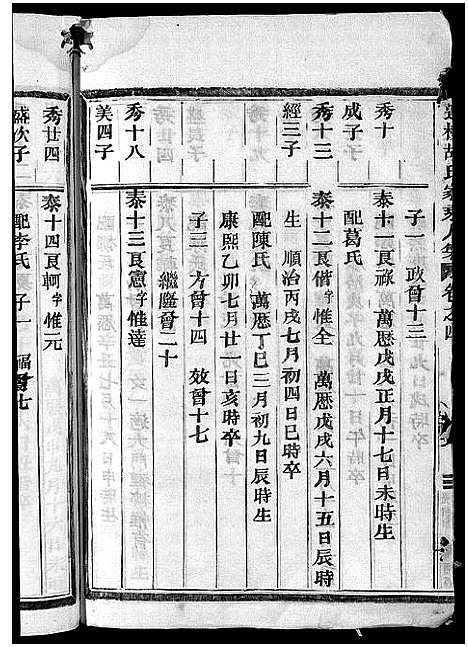 胡氏 卷之四
子一 政曾十三
秀十
成子子
泰十一良祿 萬厯戊戌正月十七日未時生
配葛氏
秀十三
經三子
泰十二良偕 字惟全 萬厯戊戌六月十五日辰時
生 順治丙戌七月初四日巳時卒
配陳氏 萬厯丁巳三月初九日辰時生
康熙乙卯七月廿一日亥時卒
子三 方曾十四 效曾十七
繼隆曾二十
秀十八
美四子
泰十三良憲 字惟達
秀廿四
盛次子
泰十四良軻 字惟元
配李氏 子一 福曾七